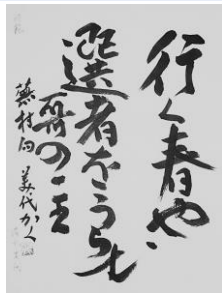 行く春や
選者をうらむ
哥の主
蕪村句 美代かく